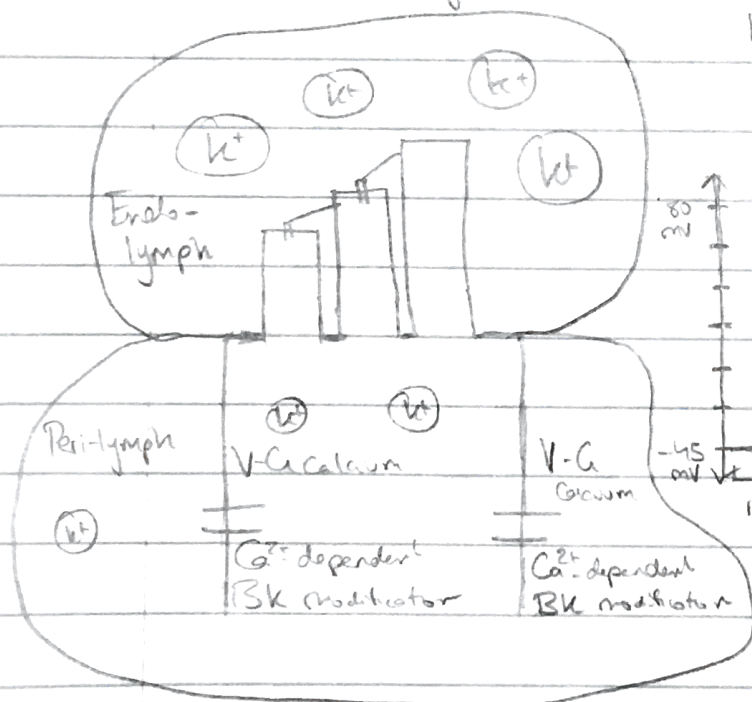 K+
K+
K+
K+
Endo-
lymph
80
mV
K+
K+
Peri-lymph
V-G calcium
V-G
Calcium
-45
mV
K+
Ca2+-dependent
BK modification
Ca2+-dependent
BK modification